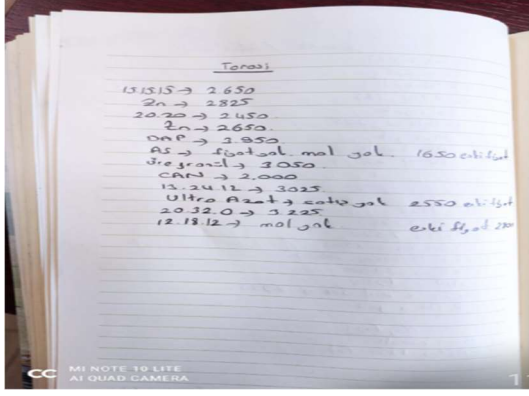 Toros
15.15.15 → 2650
Zn → 2825
20.20 → 2450
Zn → 2650
DAP → 3.850
AS → fiyat yok. mal yok. 1650 eski fiyat
Üre granül → 3050
CAN → 2.000
13.24.12 → 3025
Ultra Azot → satış yok 2550 eski fiyat
20.32.0 → 3.225
12.18.12 → mal yok eski fiyat
MI NOTE 10 LITE
AI QUAD CAMERA